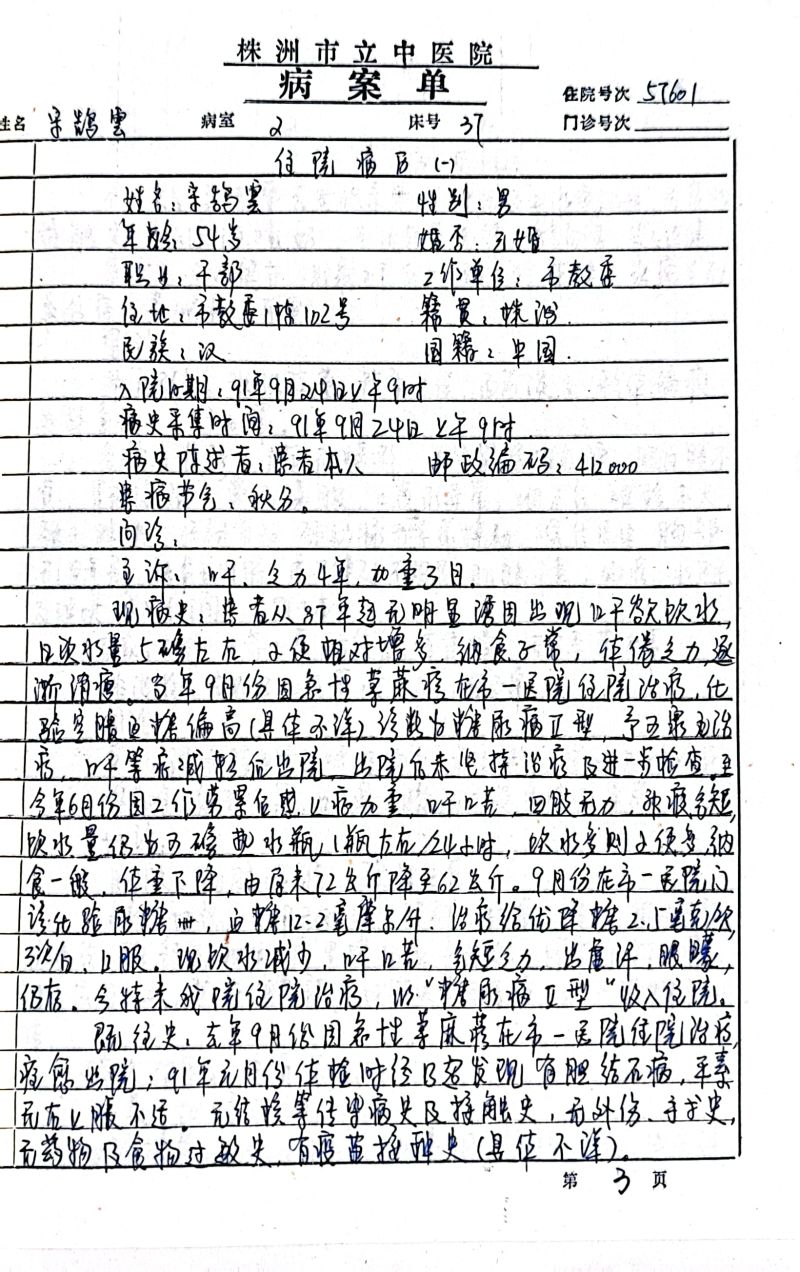 株洲市立中医院
病案单
住院号次 57601
姓名 宋鹄雲 病室 2 床号 37 门诊号次
住院病历(一)
姓名：宋鹄雲 性别：男
年龄：54岁 婚否：已婚
职业：干部 工作单位：市教委
住地：市教委1栋102号 籍贯：株洲
民族：汉 国籍：中国.
入院日期：91年9月24日上午9时
病史采集时间：91年9月24日上午9时.
病史陈述者：患者本人 邮政编码：412000
患病节气：秋分。
问诊：
主诉：口干、乏力4年，加重3月.
现病史：患者从87年起无明显诱因出现口干欲饮水，
日饮水量5磅左右，小便相对增多，纳食正常，体倦乏力，逐
渐消瘦。当年9月份因急性荨麻疹在市一医院住院治疗，化
验空腹血糖偏高(具体不详)诊断为糖尿病Ⅱ型，予治
疗，口干等症减轻后出院，出院后未坚持治疗及进一步检查。至
今年6月份因工作劳累后感上病加重，口干口苦，四肢无力，神疲气短，
饮水量约为五磅热水瓶1瓶左右/24小时，饮水多则小便多，纳
食一般，体重下降，由原来72公斤降至62公斤。9月份在市一医院门
诊化验尿糖卌，血糖12.2毫摩尔/升.治疗给优降糖2.5毫克/次
3次/日，口服。现饮水减少，口干口苦，气短乏力，出虚汗，眼矇，
仍存。今特来我院住院治疗，以"糖尿病Ⅱ型"收入住院。
既往史：去年9月份因急性荨麻疹在市一医院住院治疗，
症愈出院；91年元月份体检时经B超发现有胆结石病，平素
无右上腹不适。无结核等传染病史及接触史，无外伤、手术史，
无药物及食物过敏史，有疫苗接种史(具体不详)。
第 3 页